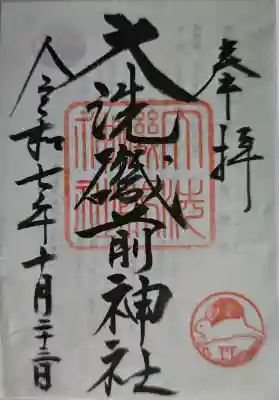 奉拝
大洗磯前神社
令和七年十月二十三日